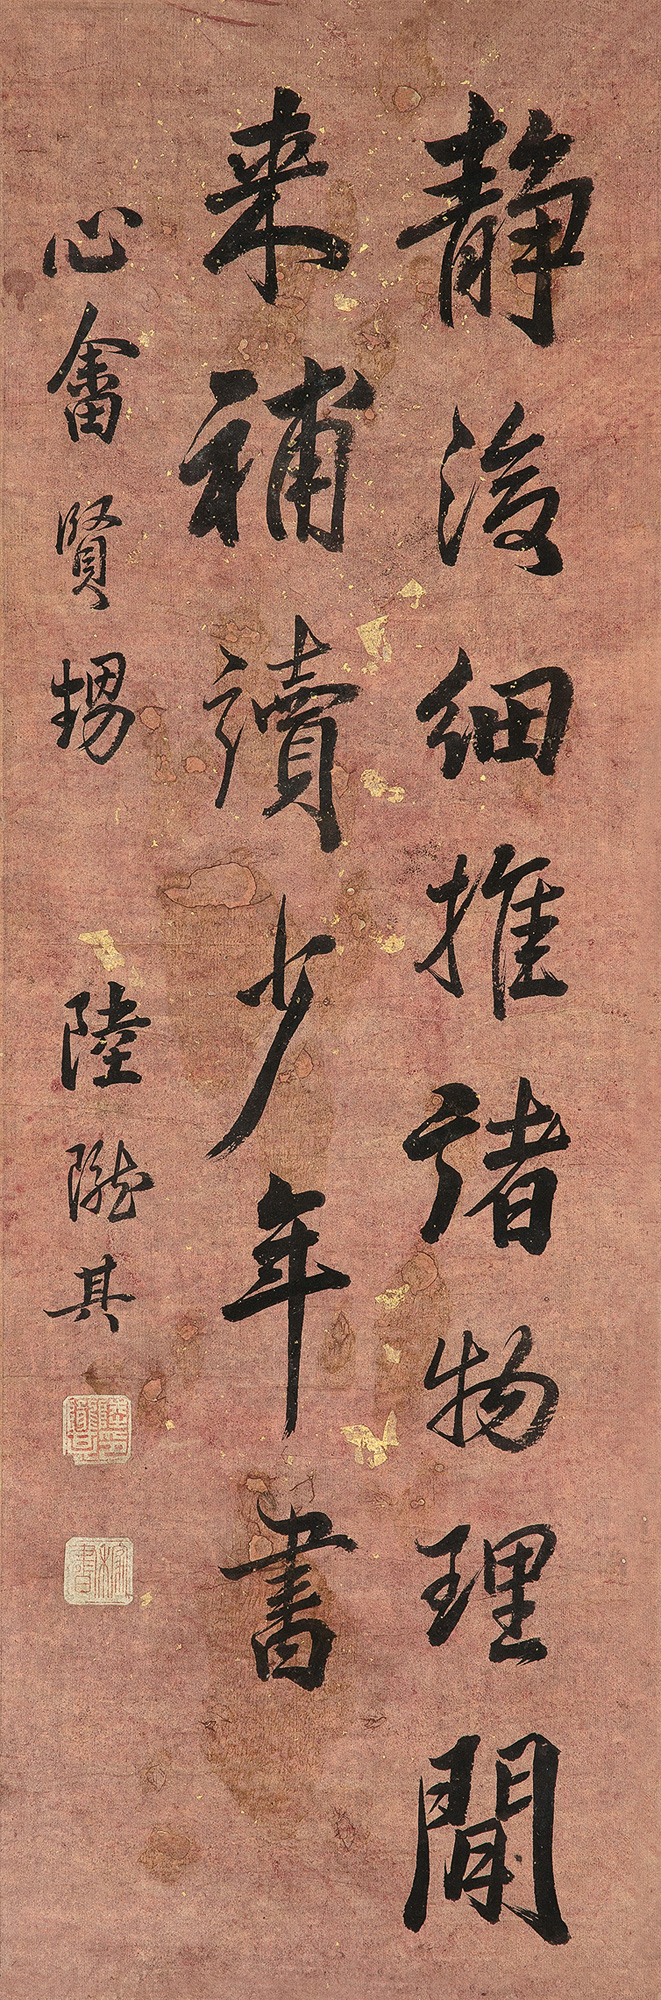 静後細推諸物理閒
来補讀少年書
心畬賢甥 陸隴其